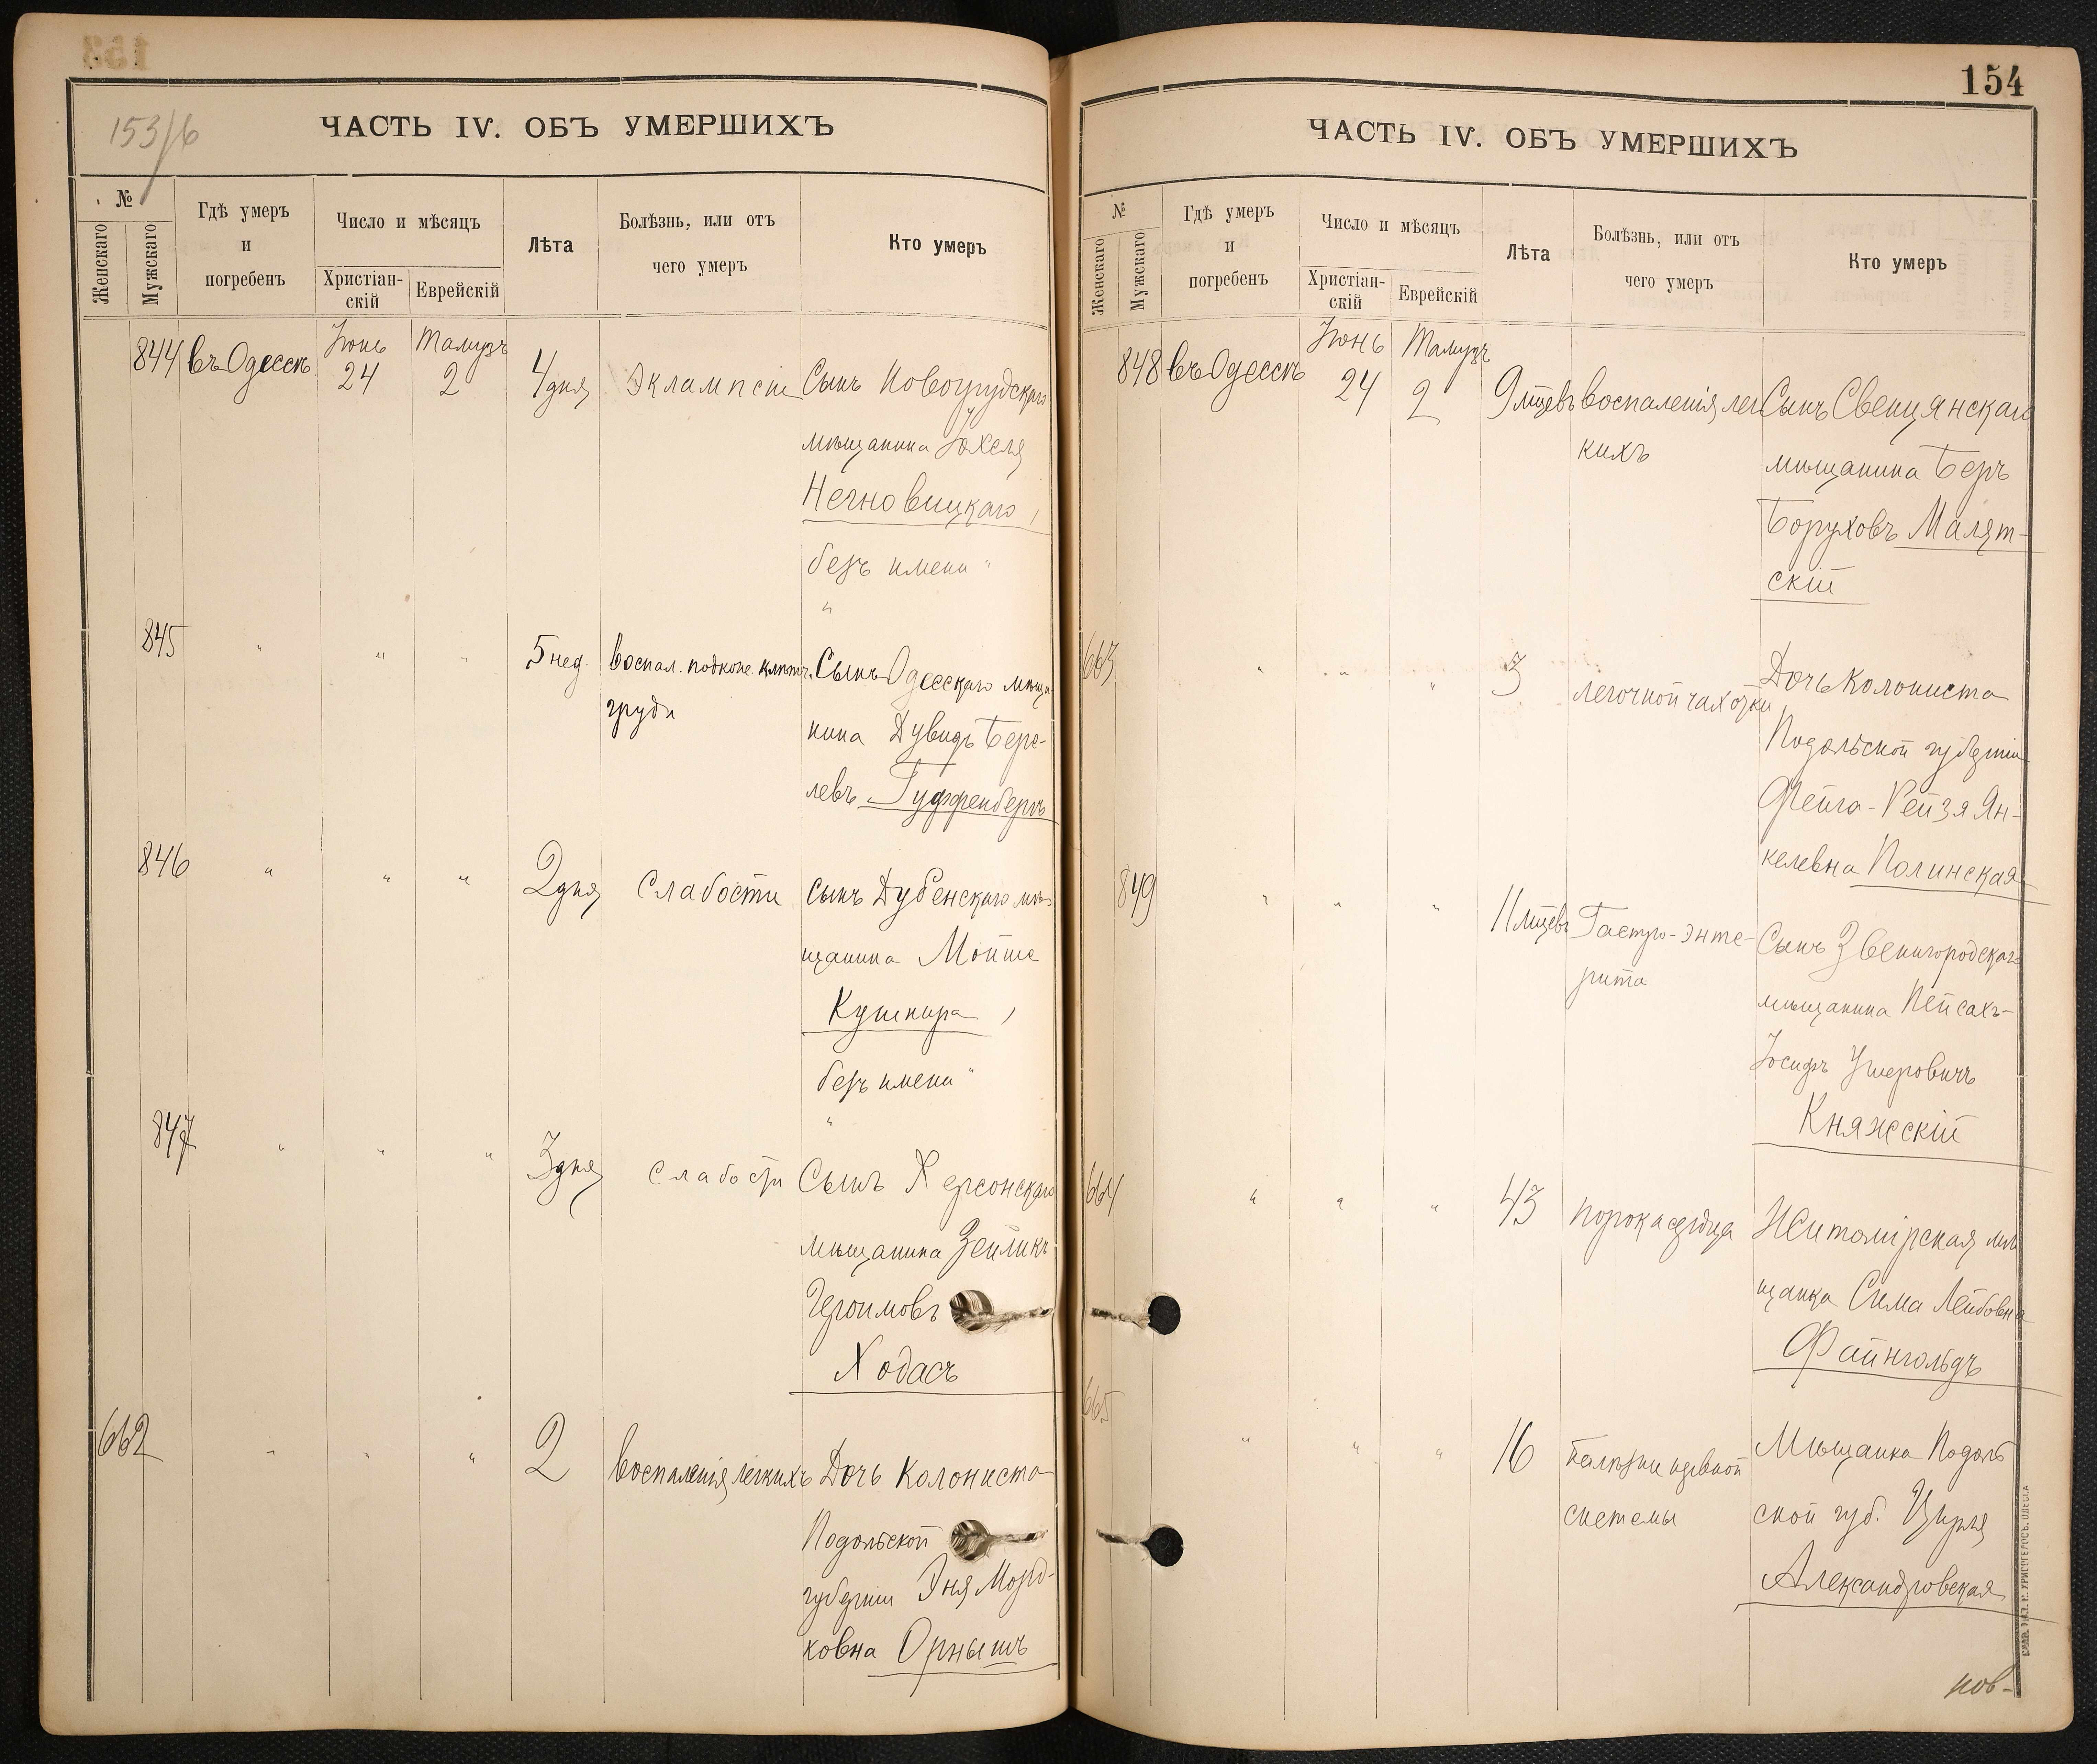 153/6
ЧАСТЬ IV. ОБЪ УМЕРШИХЪ
№
Женскаго
Мужскаго
Гдѣ умеръ
и
погребенъ
Число и мѣсяцъ
Христіан-
скій
Еврейскій
Лѣта
Болѣзнь, или отъ
чего умеръ
Кто умеръ
844 въ Одессѣ Іюнь 24 Тамузъ 2 4 дня Эклампсіи Сынъ Новогрудскаго
мѣщанина Іохеля
Нечновицкаго,
безъ имени "
"
845 " " " 5 нед. воспал. подкож. клѣтч. Сынъ Одесскаго мѣща-
груди
нина Дувидъ Бере-
левъ Гуффенбергъ
846 " " " 2 дня Слабости Сынъ Дубенскаго мѣ-
щанина Мойше
Кушнира,
безъ имени "
"
847 " " " 3 дня Слабости Сынъ Херсонскаго
мѣщанина Зейликъ
Ходасъ
662 " " " 2 воспаленія легкихъ Дочь колониста
Подольской
губерніи Эня Морд-
ковна Орнышъ
154
ЧАСТЬ IV. ОБЪ УМЕРШИХЪ
№
Женскаго
Мужскаго
Гдѣ умеръ
и
погребенъ
Число и мѣсяцъ
Христіан-
скій
Еврейскій
Лѣта
Болѣзнь, или отъ
чего умеръ
Кто умеръ
848 въ Одессѣ Іюнь 24 Тамузъ 2 9 мцевъ воспаленія лег- Сынъ Свенцянскаго
кихъ
мѣщанина Беръ
Боруховъ Малят-
скій
663 " " " 3 легочной чахотки Дочь колониста
Подольской губерніи
Фейга-Рейзя Ян-
келевна Полинская
849 " " " 11 мцевъ Гастро-энте- Сынъ Звенигородскаго
рита
мѣщанина Пейсахъ-
Іосифъ Ушеровичъ
Княжескій
664 " " " 43 порока сердца Житомірская мѣ-
щанка Сима Лейбовна
Файнгольдъ
665 " " " 16 болѣзни нервной Мѣщанка Подоль-
системы
ской губ. Цирля
Александровская
нов-